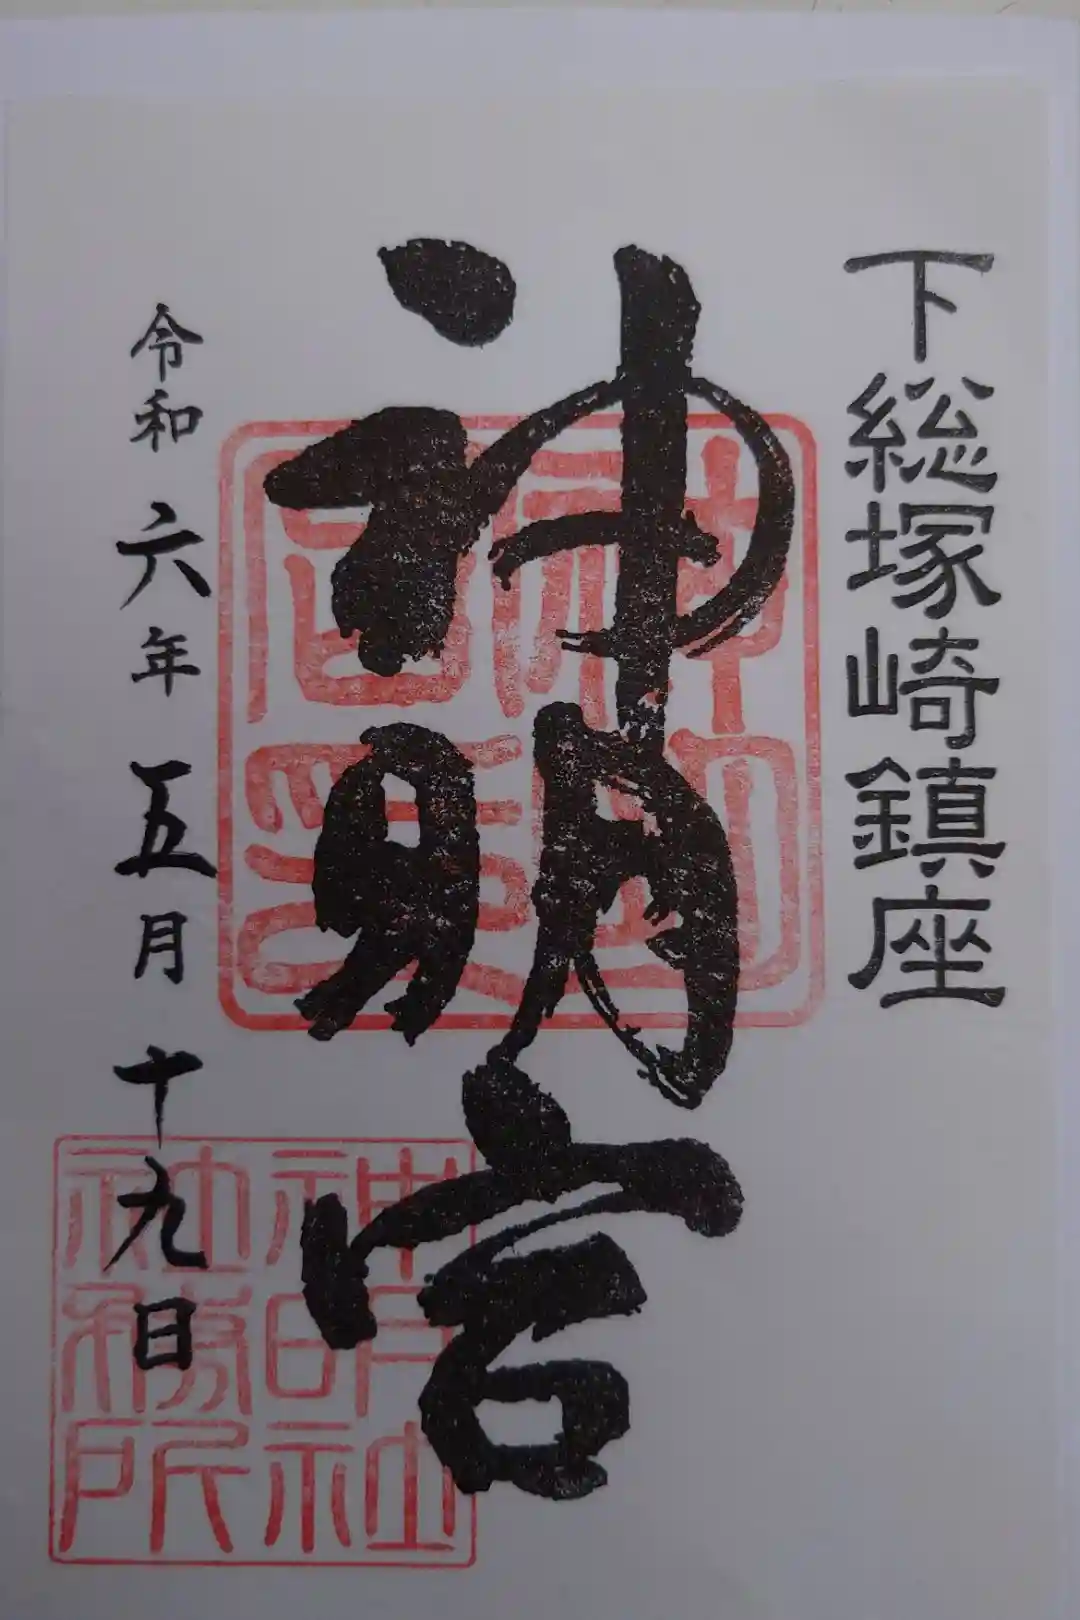 下総塚崎鎮座
神明宮
神明宮印
令和六年五月十九日
神明社
社務所